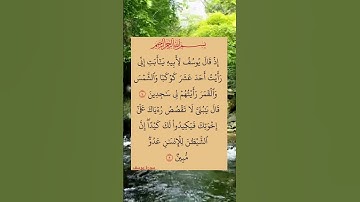 بسم الله الرحمن الرحيم
إِذْ قَالَ يُوسُفُ لِأَبِيهِ يَٰٓأَبَتِ إِنِّي
رَأَيْتُ أَحَدَ عَشَرَ كَوْكَبًا وَٱلشَّمْسَ
وَٱلْقَمَرَ رَأَيْتُهُمْ لِي سَٰجِدِينَ
قَالَ يَٰبُنَيَّ لَا تَقْصُصْ رُءْيَاكَ عَلَىٰٓ
إِخْوَتِكَ فَيَكِيدُوا۟ لَكَ كَيْدًا ۖ إِنَّ
ٱلشَّيْطَٰنَ لِلْإِنسَٰنِ عَدُوٌّ
مُّبِينٌ